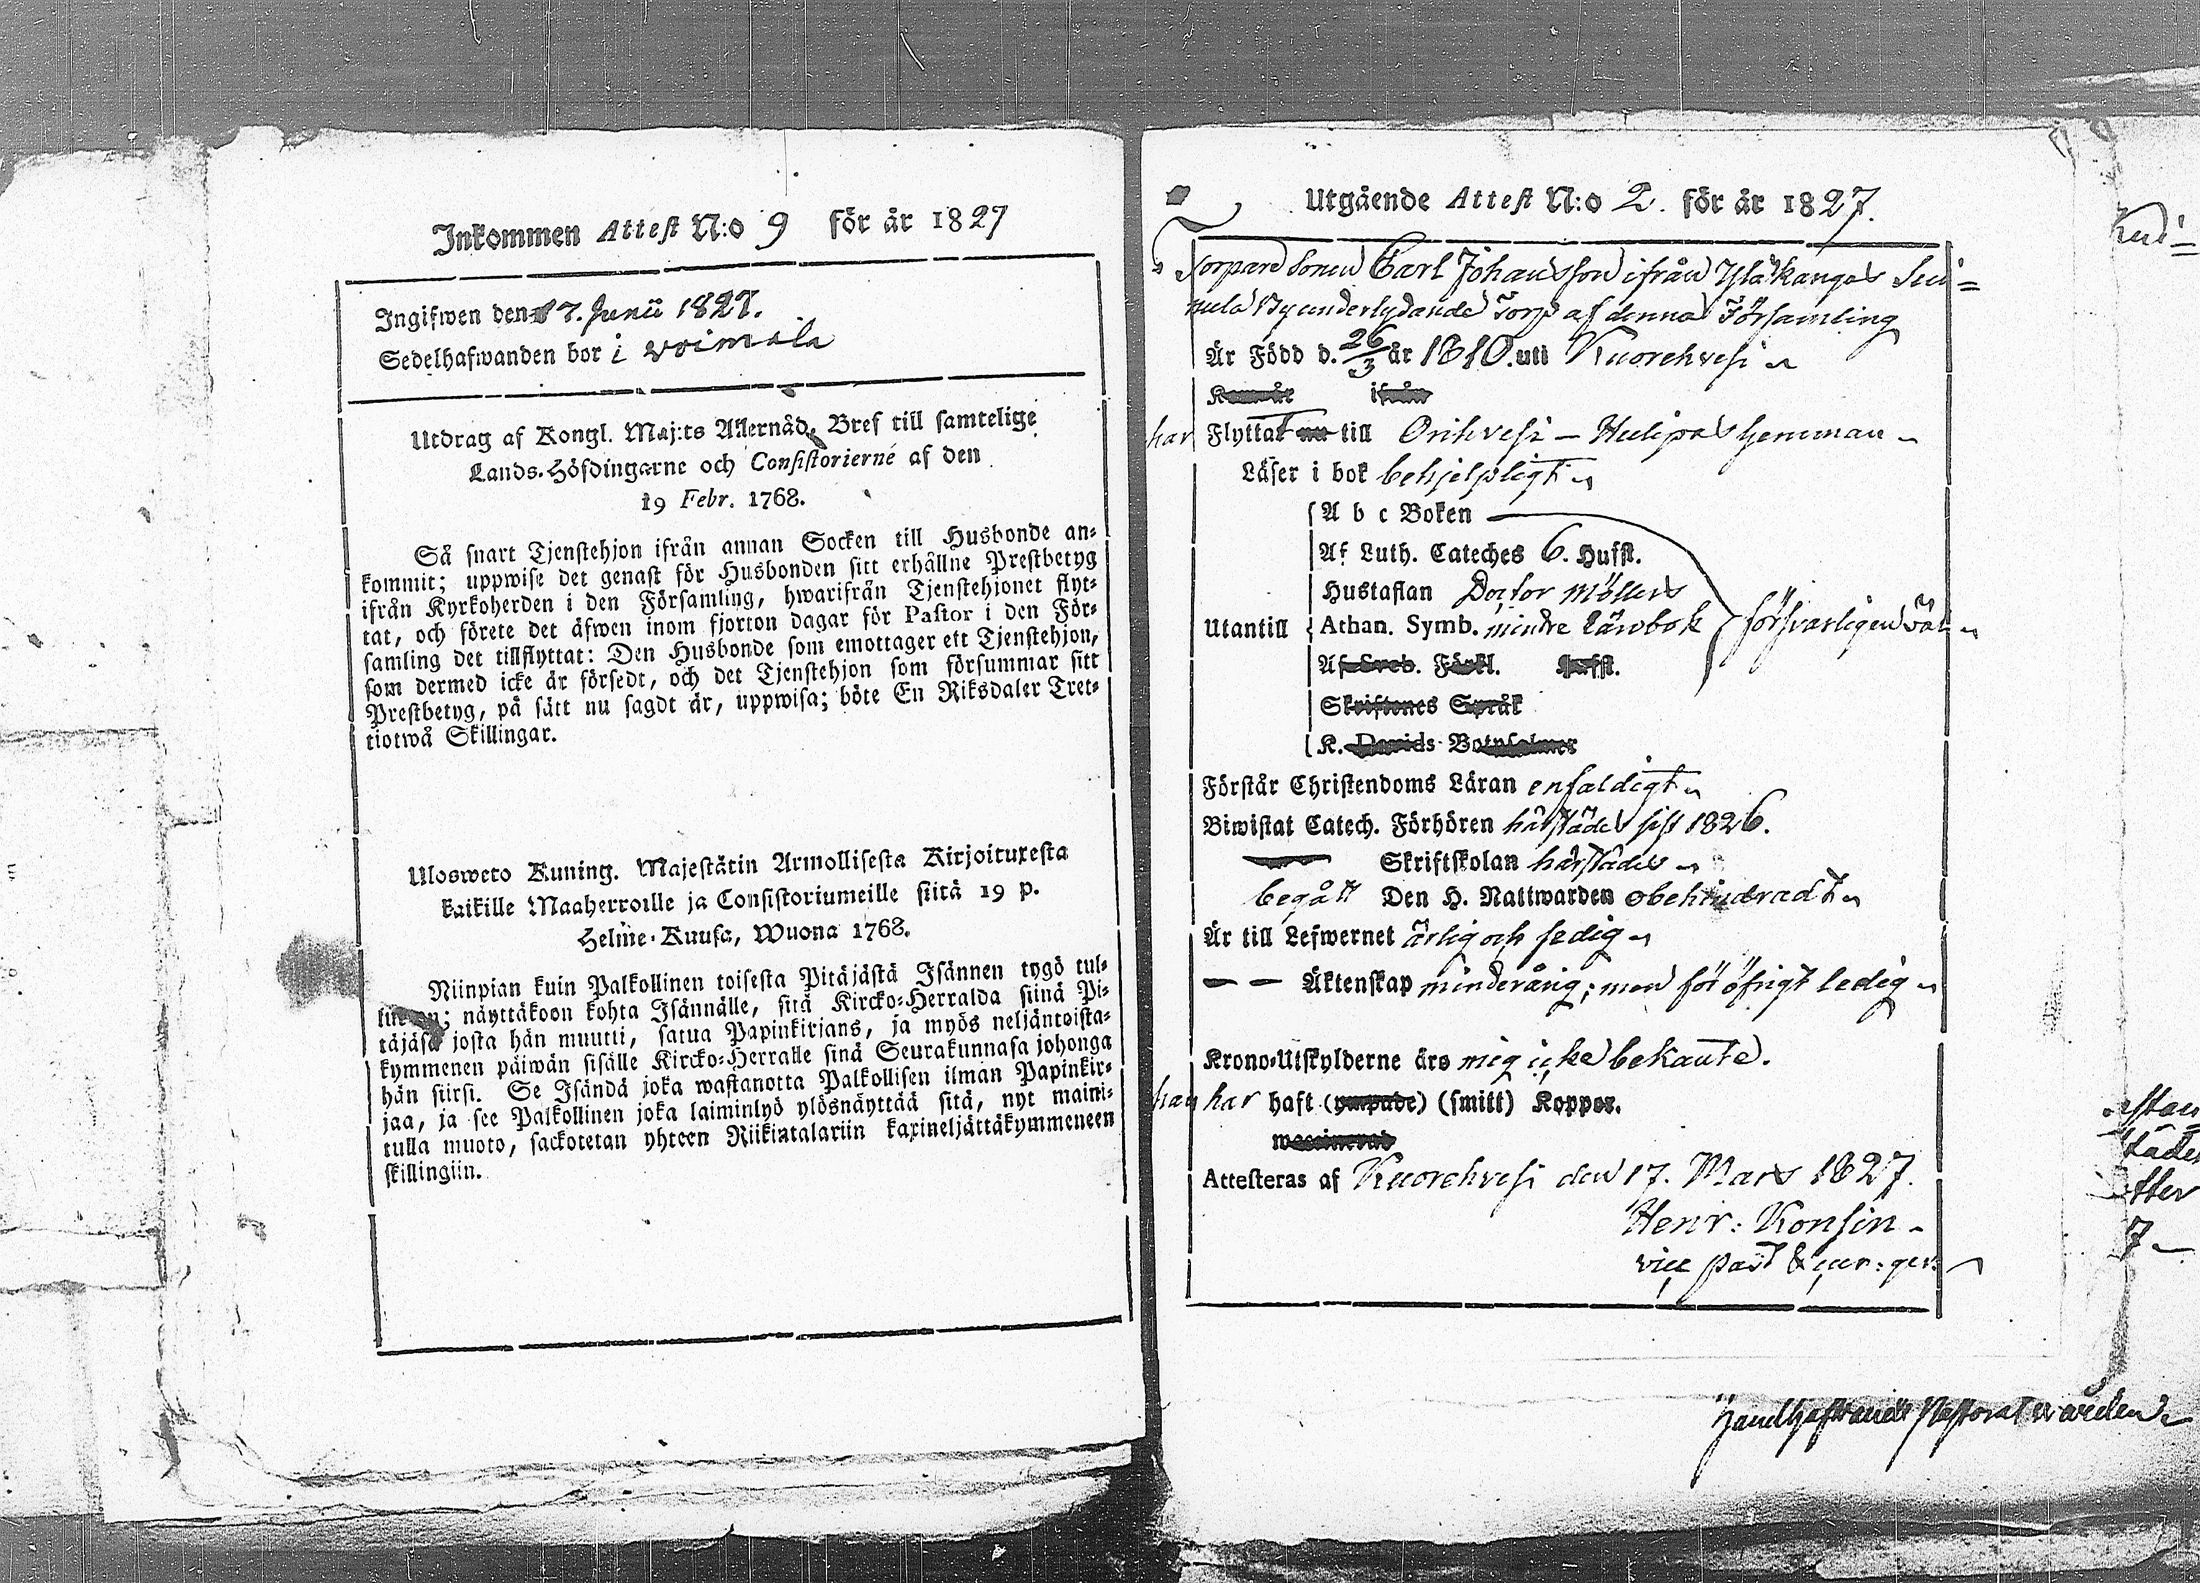 Inkommen Attest N:o 9 för år 1827
Ingifwen den 17. Junii 1827.
Sedelhafwanden bor i Woimala
Utdrag af Kongl. Maj:ts Allernåd. Bref till samtelige
Lands-Höfdingarne och Consistorierne af den
19 Febr. 1768.
Så snart Tjenstehjon ifrån annan Socken till Husbonde an-
kommit; uppwise det genast för Husbonden sitt erhållne Prestbetyg
ifrån Kyrkoherden i den Församling, hwarifrån Tjenstehjonet flyt-
tat, och förete det äfwen inom fjorton dagar för Pastor i den För-
samling det tillflyttat: Den Husbonde som emottager ett Tjenstehjon,
som dermed icke är försedt, och det Tjenstehjon som försummar sitt
Prestbetyg, på sätt nu sagdt är, uppwisa; böte En Riksdaler Tret-
tiotwå Skillingar.
Ulosweto Kuning. Majestätin Armollisesta Kirjoituxesta
kaikille Maaherroille ja Consistoriumeille siitä 19 p.
Helme-Kuusa, Wuona 1768.
Niinpian kuin Palkollinen toisesta Pitäjästä Isännen tygö tul-
lut on; näyttäkoon kohta Isännälle, sitä Kircko-Herralda siinä Pi-
täjäsä josta hän muutti, satua Papinkirjans, ja myös neljäntoista-
kymmenen päiwän sisälle Kircko-Herralle sinä Seurakunnasa johonga
hän siirsi. Se Isändä joka wastanotta Palkollisen ilman Papinkir-
jaa, ja see Palkollinen joka laiminlyö ylösnäyttää sitä, nyt maini-
tulla muoto, sackotetan yhteen Riikintalariin kaxineljättäkymmeneen
skillingiin.
Utgående Attest N:o 2. för år 1827.
Torpare Sonen Carl Johansson ifrån Yläkangas Sui-
nula By underlydande Torp af denna Församling
Är Född d. 26/3 år 1810. uti Kuorehvesi
Kom år ifrån
har Flyttat nu till Orihvesi – Hulipas hemman
Läser i bok behjelpligt
A b c Boken
Af Luth. Cateches 6. Hufst.
Hustaflan Doctor Möllers
Utantill Athan. Symb. mindre Lärobok försvarligen väl
Af Sveb. Förkl. Hufst.
Skriftenes Språk
K. Davids Botpsalmer
Förstår Christendoms Läran enfaldigt
Biwistat Catech. Förhören härstädes sist 1826.
Skriftskolan härstädes
begått Den H. Nattwarden obehindradt
Är till Lefwernet ärlig och sedig
— — Äktenskap minderårig; men för öfrigt ledig
Krono-Utskylderne äro mig icke bekante.
han har haft (ympade) (smitt) Koppor.
waccinerad
Attesteras af Kuorehvesi den 17. Mars 1827.
Henr: Konsin
vice past & cur: ger:
Handhafwande Pastoratwården